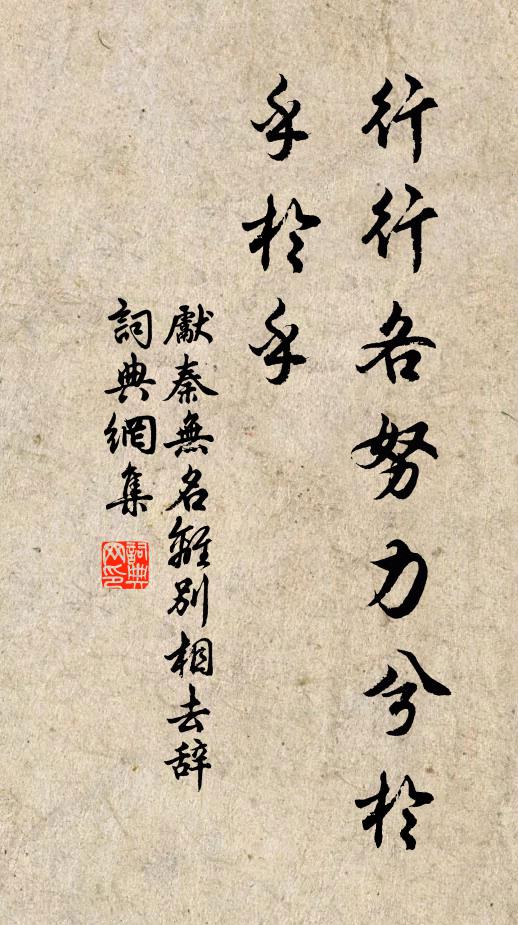 行行各努力兮於
乎於乎
獻秦無名離別相去辞
詞典網集
詞典網印